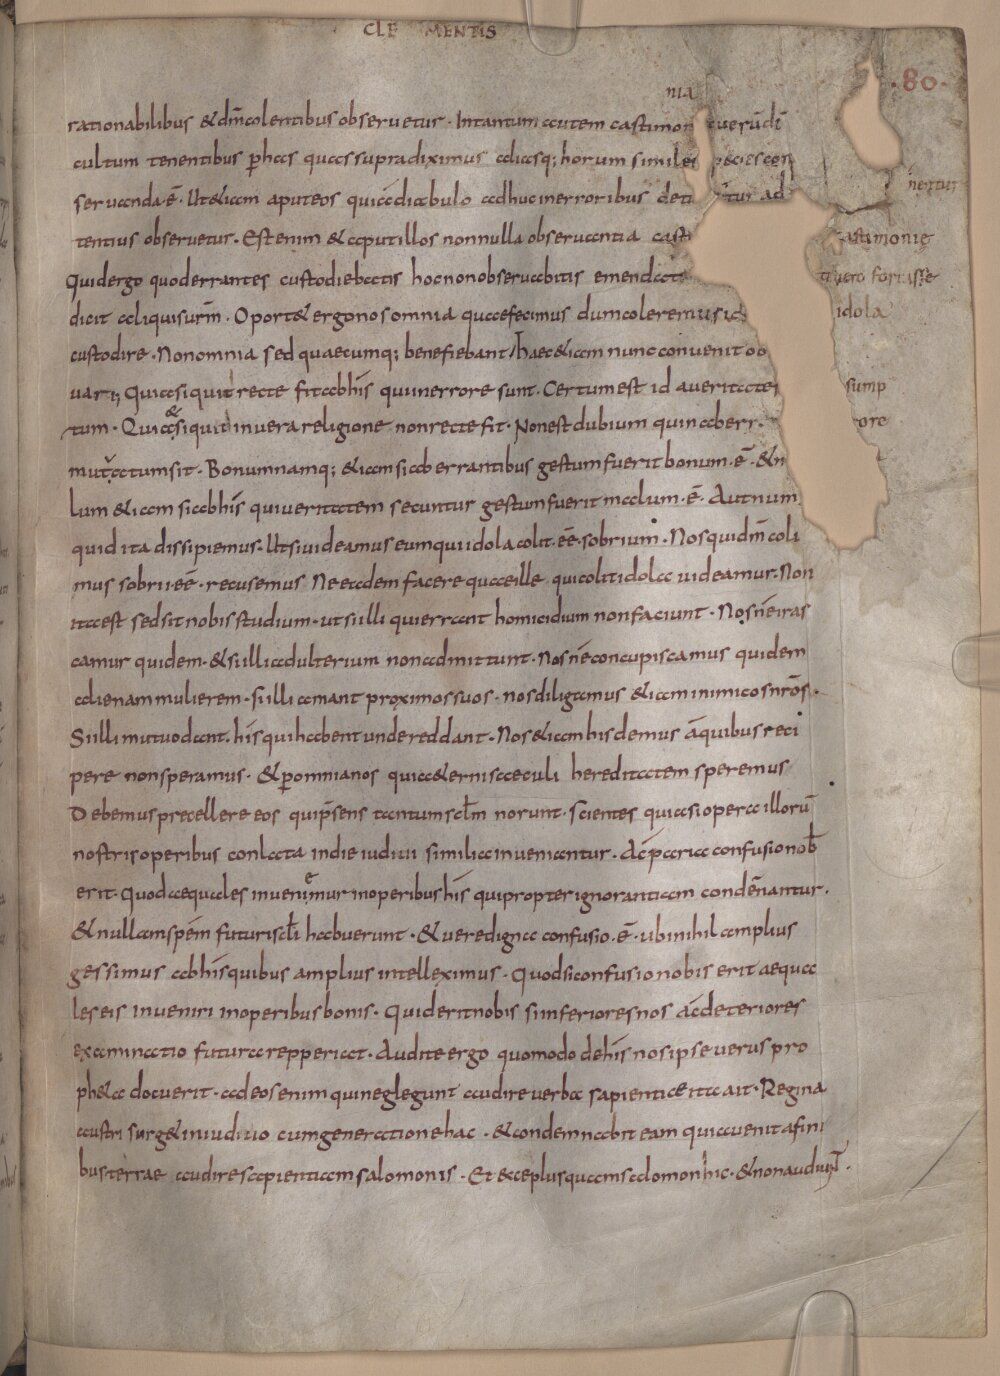 CLEMENTIS
·80·
nia
rationabilibus & dm̄ colentibus observetur · Intantum autem castimon uerū dī
cultum tenentibus p̄ has quas supra diximus adiasq; horum simile species con
seruanda · ē · Ut & iam aput eos qui a diabulo adhuc inerroribus det tur ad
nextur
tentius observetur · Est enim & aput illos nonnulla observantia casti castimonie
Quid ergo quod errantes custodiebatis hoc non observabitis emendate uero fortasse
dicit aliquis urm̄ · Oport& ergo nos omnia quae fecimus dum coleremus id idola
custodire · Non omnia sed quaecumq; benefiebant haec & iam nunc convenit
Quia si quit recte fit ab his qui in errore sunt · Certum est id a veritate sump
tum · Quia & si quit in vera religione non recte fit · Non est dubium quin ab err rore
mutatum sit · Bonum namq; & iam si ab errantibus gestum fuerit bonum · ē · & m
lum & iam si ab his qui veritatem secuntur gestum fuerit malum · ē · Aut num
quid ita dissipiemus · Ut si videamus eum qui idola colit · ēē · sobrium · Nos qui dm̄ coli
mus sobrii · ēē · recusemus Ne eadem facere quae ille qui colit idola videamur · Non
ita est sed sit nobis studium · ut si illi qui errant homicidium non faciunt · Nos nē iras
camur quidem · & si illi adulterium non admittunt · Nos nē concupiscamus quidem
alienam mulierem · si illi amant proximos suos · nos diligamus & iam inimicos nr̄os ·
Si illi mutuo dant · his qui habent unde reddant · Nos & iam his demus a quibus reci
pere non speramus · & p̄ omnia nos qui a&erni saeculi hereditatem speremus
Debemus precellere eos qui p̄sens tantum sclm̄ norunt · scientes quia si opera illorū
nostris operibus conlata in die iudicii similia inveniantur · Ac paria confusio nob̄
erit · Quod aequales invenimur in operibus his qui propter ignorantiam condēnantur ·
& nullam spem futuri sclī habuerunt · & vere digna confusio · ē · ubi nihil amplius
gessimus ab his quibus amplius intelleximus · Quod si confusio nobis erit aequa
les eis inveniri in operibus bonis · Quid erit nobis si inferiores nos ac deteriores
examinatio futura repperiat · Audite ergo quomodo de his nos ipse verus pro
ph&a docuerit · ad eos enim qui neglegunt audire verba sapientiae ita ait · Regina
austri surg& in iudicio cum generatione hac · & condemnabit eam quia venit a fini
bus terrae audire sapientiam salomonis · Et ecce plus quam salomon hic · & non audiunt ·